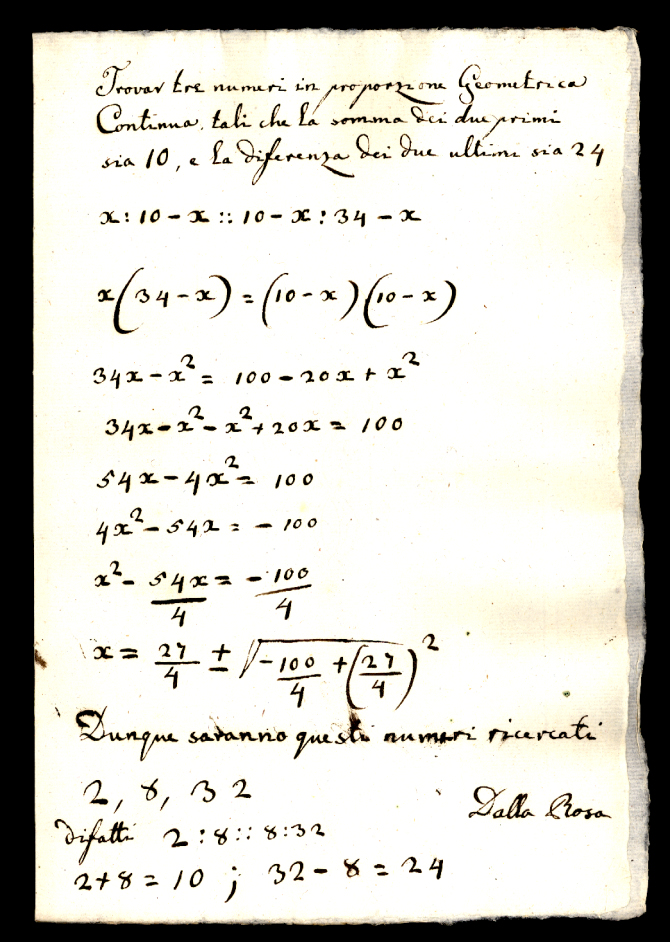 Trovar tre numeri in proporzione Geometrica
Continua, tali che la somma dei due primi
sia 10, e la diferenza dei due ultimi sia 24
x : 10 - x :: 10 - x : 34 - x
x(34 - x) = (10 - x)(10 - x)
34x - x² = 100 - 20x + x²
34x - x² - x² + 20x = 100
54x - 4x² = 100
4x² - 54x = - 100
x² - 54x/4 = - 100/4
x = 27/4 ± √-100/4 + (27/4)²
Dunque saranno questi numeri ricercati
2, 8, 32
Dalla Rosa
difatti 2 : 8 :: 8 : 32
2 + 8 = 10 ; 32 - 8 = 24